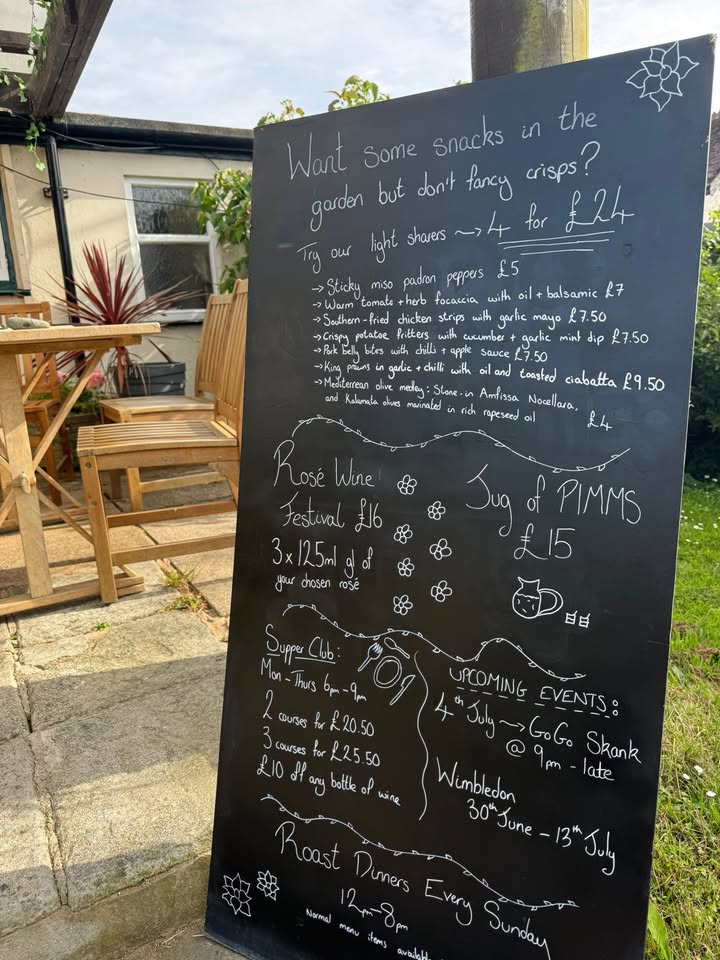 Want some snacks in the
garden but don't fancy crisps?
Try our light sharers → 4 for £24
→ Sticky miso padron peppers £5
→ Warm tomato + herb focaccia with oil + balsamic £7
→ Southern-fried chicken strips with garlic mayo £7.50
→ Crispy potatoe fritters with cucumber + garlic mint dip £7.50
→ Pork belly bites with chilli + apple sauce £7.50
→ King prawns in garlic + chilli with oil and toasted ciabatta £9.50
→ Mediterrean olive medley: Stone-in Amfissa Nocellara,
and Kalamata olives marinated in rich rapeseed oil £4
Rosé Wine
Festival £16
3 x 125ml gl of
your chosen rosé
Jug of PIMMS
£15
Supper Club:
Mon - Thurs 6pm - 9pm
2 courses for £20.50
3 courses for £25.50
£10 off any bottle of wine
UPCOMING EVENTS:
4th July → GoGo Skank
@ 9pm - late
Wimbledon
30th June - 13th July
Roast Dinners Every Sunday
12pm - 8pm
Normal menu items available